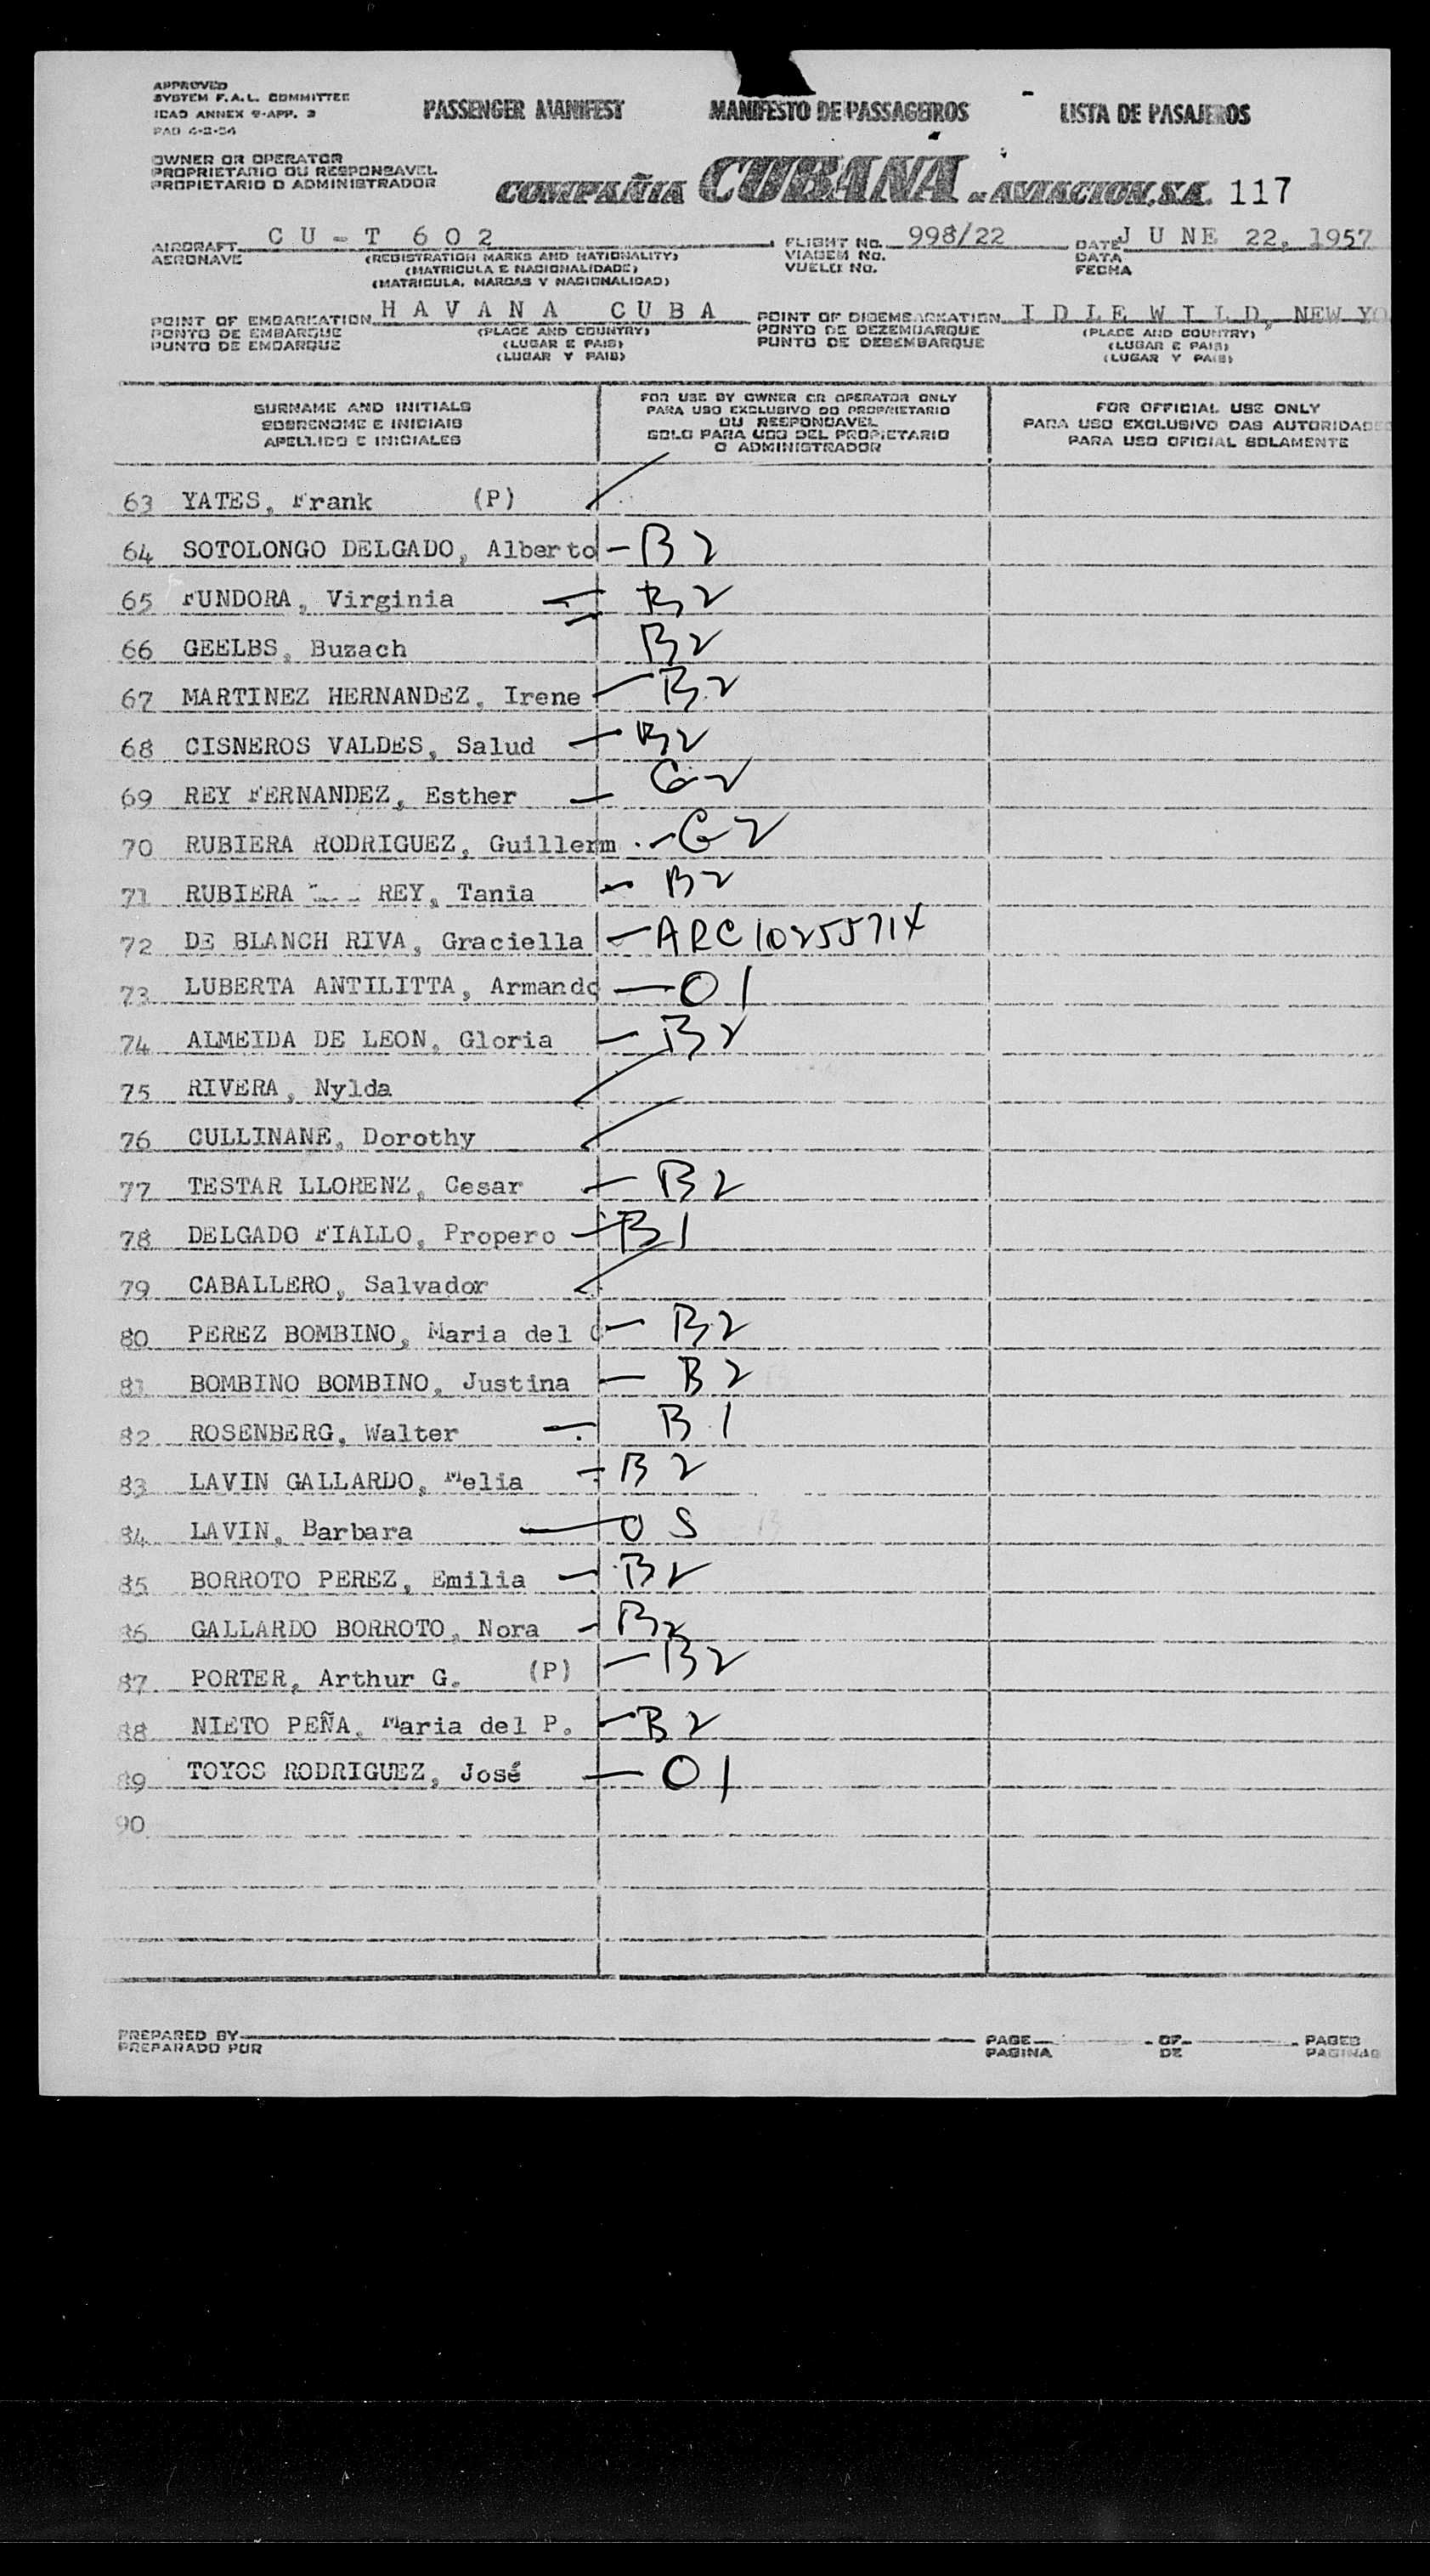 APPROVED
SYSTEM F.A.L. COMMITTEE
ICAO ANNEX 9-APP. 3
PAD 4-2-54
PASSENGER MANIFEST MANIFESTO DE PASSAGEIROS LISTA DE PASAJEROS
OWNER OR OPERATOR
PROPRIETARIO OU RESPONSAVEL
PROPIETARIO O ADMINISTRADOR
COMPAÑIA CUBANA DE AVIACION, S.A. 117
AIRCRAFT CU-T 602 FLIGHT No. 998/22 DATE JUNE 22, 1957
AERONAVE (REGISTRATION MARKS AND NATIONALITY) VIAGEM No. DATA
(MATRICULA E NACIONALIDADE) VUELO No. FECHA
(MATRICULA, MARCAS Y NACIONALIDAD)
POINT OF EMBARKATION HAVANA CUBA POINT OF DISEMBARKATION IDLEWILD, NEW YO
PONTO DE EMBARQUE (PLACE AND COUNTRY) PONTO DE DEZEMBARQUE (PLACE AND COUNTRY)
PUNTO DE EMBARQUE (LUGAR E PAIS) PUNTO DE DESEMBARQUE (LUGAR E PAIS)
(LUGAR Y PAIS) (LUGAR Y PAIS)
SURNAME AND INITIALS
SOBRENOME E INICIAIS
APELLIDO E INICIALES
FOR USE BY OWNER OR OPERATOR ONLY
PARA USO EXCLUSIVO DO PROPRIETARIO
OU RESPONDAVEL
SOLO PARA USO DEL PROPIETARIO
O ADMINISTRADOR
FOR OFFICIAL USE ONLY
PARA USO EXCLUSIVO DAS AUTORIDADES
PARA USO OFICIAL SOLAMENTE
63 YATES, Frank (P)
64 SOTOLONGO DELGADO, Alberto - B2
65 FUNDORA, Virginia - B2
66 GEELBS, Buzach B2
67 MARTINEZ HERNANDEZ, Irene - B2
68 CISNEROS VALDES, Salud - B2
69 REY FERNANDEZ, Esther - G2
70 RUBIERA RODRIGUEZ, Guillerm - G2
71 RUBIERA REY, Tania - B2
72 DE BLANCH RIVA, Graciella - ARC
73 LUBERTA ANTILITTA, Armando - O1
74 ALMEIDA DE LEON, Gloria - B2
75 RIVERA, Nylda
76 CULLINANE, Dorothy
77 TESTAR LLORENZ, Cesar - B2
78 DELGADO FIALLO, Propero - B1
79 CABALLERO, Salvador
80 PEREZ BOMBINO, Maria del C - B2
81 BOMBINO BOMBINO, Justina - B2
82 ROSENBERG, Walter - B1
83 LAVIN GALLARDO, Melia - B2
84 LAVIN, Barbara - O S
85 BORROTO PEREZ, Emilia - B2
86 GALLARDO BORROTO, Nora - B2
87 PORTER, Arthur G. (P) - B2
88 NIETO PEÑA, Maria del P. - B2
89 TOYOS RODRIGUEZ, José - O1
90
PREPARED BY PAGE OF PAGES
PREPARADO POR PAGINA DE PAGINAS